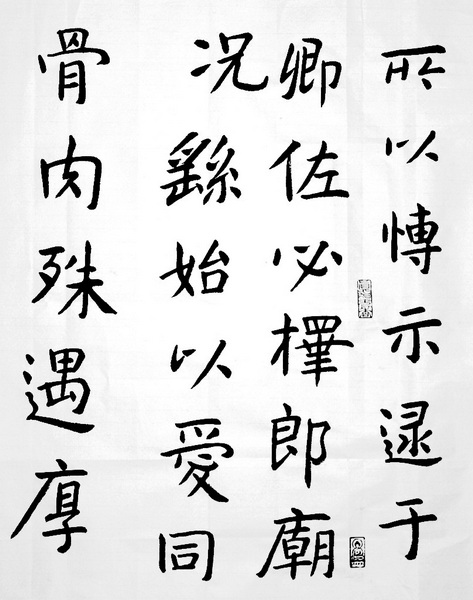 所以愽示逮于
卿佐必擇郎廟
况繇始以愛同
骨肉殊遇厚